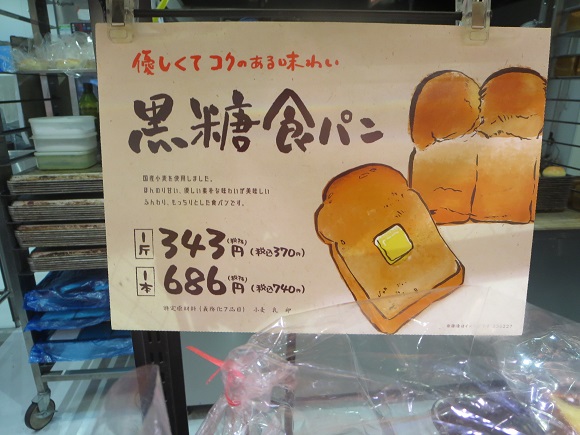 優しくてコクのある味わい
黒糖食パン
国産小麦を使用しました。
ほんのり甘い、優しい素朴な味わいが美味しい
ふんわり、もっちりとした食パンです。
1斤 343円(税抜) (税込370円)
1本 686円(税抜) (税込740円)
特定原材料(義務化7品目) 小麦 乳 卵